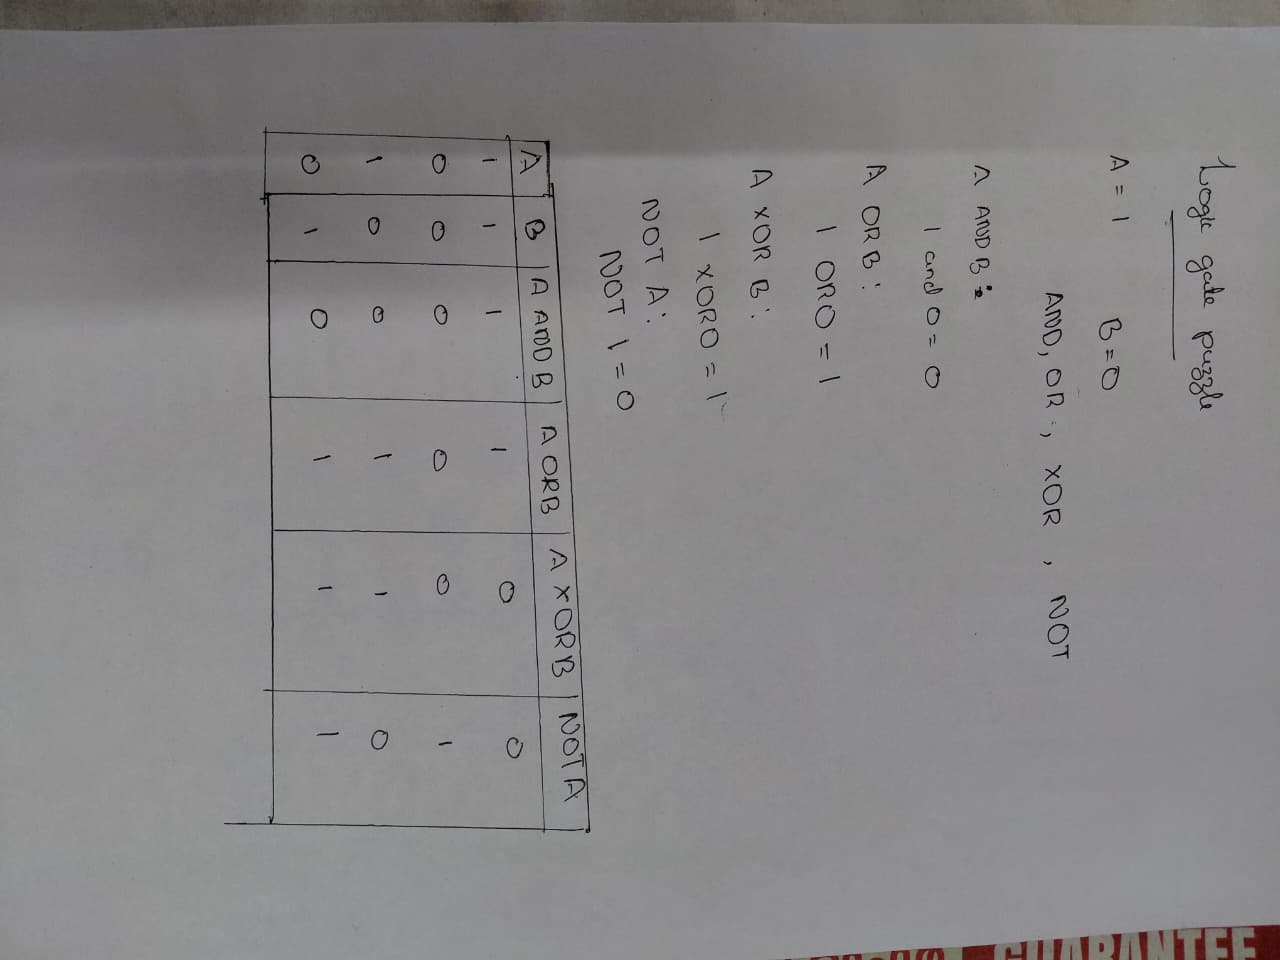 Logic gate puzzle
A = 1 B = 0
AND, OR, XOR, NOT
A AND B:
1 and 0 = 0
A OR B:
1 OR 0 = 1
A XOR B:
1 XOR 0 = 1
NOT A:
NOT 1 = 0
A B A AND B A OR B A XOR B NOT A
1 1 1 1 0 0
0 0 0 0 0 1
1 0 0 1 1 0
0 1 0 1 1 1
GUARANTEE